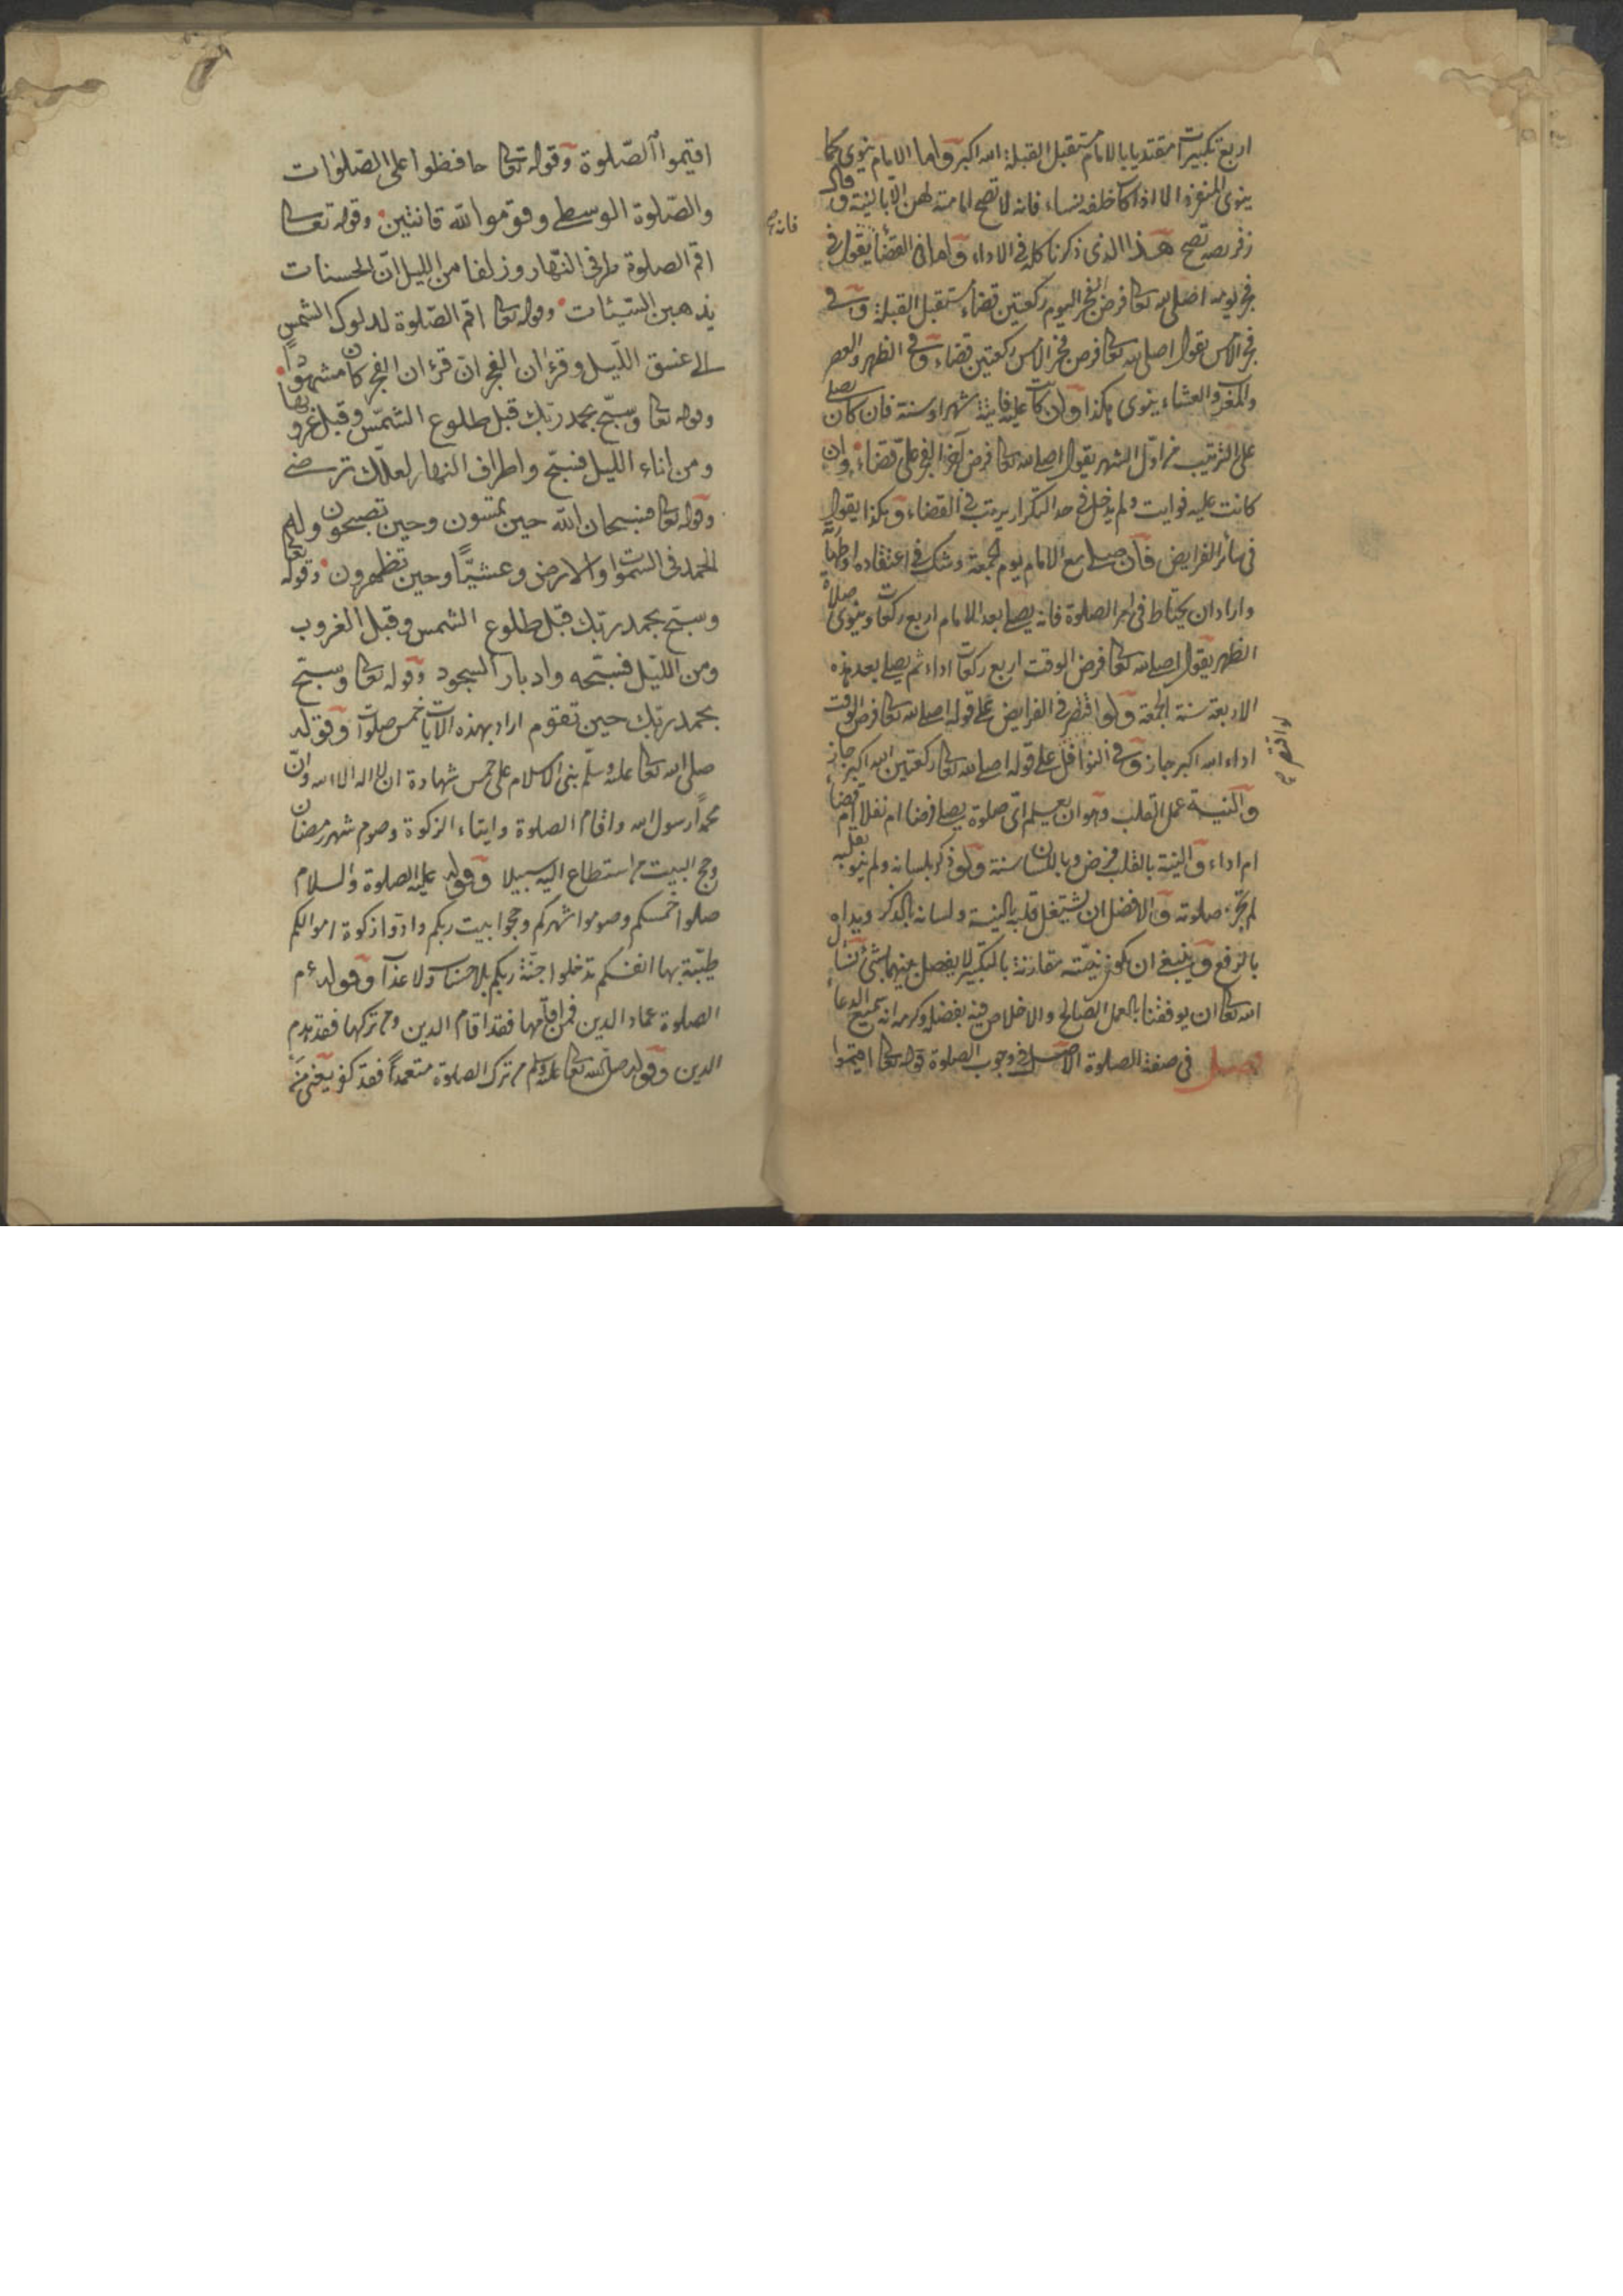 اربع تكبيرات مقتديا بالامام مستقبل القبلة الله اكبر واما الامام ينوى كما
ينوى المنفرد الا اذا كا خلفه نساء فانه لا تصح امامته لهن الا بالنية وقال
زفر يصح هذا الذى ذكرنا كله فى الاداء واما فى القضا يقول فى
فجر يومه اصلى لله تعا فرض الفجر اليوم ركعتين قضاء مستقبل القبلة وفى
فجر الامس يقول اصلى لله تعا فرض فجر الامس ركعتين قضاء وفى الظهر والعصر
والمغرب والعشاء ينوى هكذا وان كانت عليه فايتة شهر او سنة فان كان يصلى
على الترتيب من اول الشهر يقول اصلى لله تعا فرض آخر الفجر على قضاء وان
كانت عليه فوايت ولم يدخل فى حد التكرار يرتب فى القضاء وهكذا يقول
فى سائر الفرايض فان صلى مع الامام يوم الجمعة وشك فى اعتقاده او طهارته
واراد ان يحتاط فى امر الصلوة فانه يصلى بعد الامام اربع ركعات وينوى صلاة
الظهر يقول اصلى لله تعا فرض الوقت اربع ركعات اداء ثم يصلى بعد هذه
الاربعة سنة الجمعة ولو اقتصر فى الفرايض على قوله اصلى لله تعا فرض الوقت
اداء الله اكبر جاز وفى النوافل على قوله اصلى لله تعا ركعتين الله اكبر جاز
والنية عمل القلب وهو ان يعلم اى صلوة يصلى فرضا ام نفلا ام قضاء
ام اداء والنية بالقلب فرض وباللسان سنة ولو ذكر بلسانه ولم ينو بقلبه
لم تجز صلوته والافضل ان يشتغل قلبه بالنية ولسانه بالذكر ويداه
بالرفع وينبغى ان يكون نيته مقارنة بالتكبير لا يفصل بينهما بشئ نسأل
الله تعا ان يوفقنا بالعمل الصالح والاخلاص فيه بفضله وكرمه انه سميع الدعاء
فصل فى صفة الصلوة الاصل فى وجوب الصلوة قوله تعا اقيموا
فانه
اقيموا الصّلوة وقوله تعا حافظوا على الصّلوات
والصّلوة الوسطى وقوموا لله قانتين وقوله تعا
اقم الصلوة طرفى النّهار وزلفا من الليل انّ الحسنات
يذهبن السّيّئات وقوله تعا اقم الصّلوة لدلوك الشمس
الى غسق اللّيل وقرءان الفجر ان قرءان الفجر كان مشهودا
وقوله تعا وسبّح بحمد ربّك قبل طلوع الشّمس وقبل غروبها
ومن اناء الليل فسبّح واطراف النهار لعلّك ترضى
وقوله تعا فسبحان الله حين تمسون وحين تصبحون وله
الحمد فى السموات والارض وعشيّا وحين تظهرون وقوله تعا
وسبّح بحمد ربّك قبل طلوع الشمس وقبل الغروب
ومن اللّيل فسبّحه وادبار السجود وقوله تعا وسبّح
بحمد ربّك حين تقوم اراد بهذه الايات خمس صلوات وقوله
صلى الله تعا عليه وسلّم بنى الاسلام على خمس شهادة ان لا اله الا الله وانّ
محمدًا رسول الله واقام الصلوة وايتاء الزكوة وصوم شهر رمضان
وحج البيت من استطاع اليه سبيلا وقوله عليه الصلوة والسلام
صلوا خمسكم وصوموا شهركم وحجوا بيت ربكم وادوا زكوة اموالكم
طيّبة بها انفسكم تدخلوا جنّة ربكم بلا حساب ولا عذاب وقوله ع م
الصلوة عماد الدين فمن اقامها فقد اقام الدين ومن تركها فقد هدم
الدين وقوله صلى الله تعا عليه وسلم من ترك الصلوة متعمدًا فقد كفر يعنى من